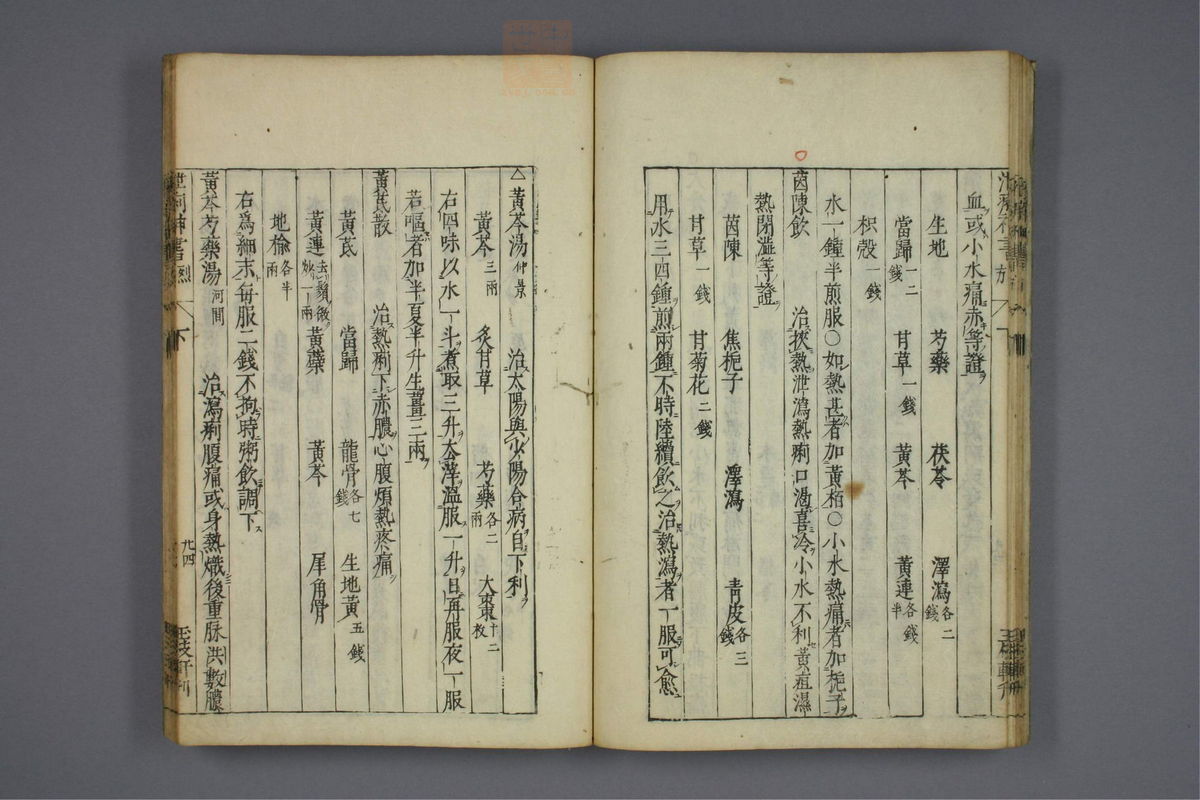 血或小水痛赤等證
生地 芍藥 茯苓 澤瀉各二錢
當歸一二錢 甘草一錢 黃芩 黃連各錢半
枳殼一錢
水一鐘半煎服○如熱甚者加黃柏○小水熱痛者加梔子
茵陳飲 治挾熱泄瀉熱痢口渴喜冷小水不利黃疸濕
熱閉澁等證
茵陳 焦梔子 澤瀉 青皮各三錢
甘草一錢 甘菊花二錢
用水三四鐘煎兩鐘不時陸續飲之治熱瀉者一服可愈
△黃芩湯仲景 治太陽與少陽合病自下利
黃芩三兩 炙甘草 芍藥各二兩 大棗十二枚
右四味以水一斗煮取三升去滓溫服一升日再服夜一服
若嘔者加半夏半升生薑三兩
黃芪散 治熱痢下赤膿心腹煩熱疼痛
黃芪 當歸 龍骨各七錢 生地黃五錢
黃連去鬚微炒一兩 黃蘗 黃芩 犀角屑
地榆各半兩
右爲細末每服二錢不拘時粥飲調下
黃芩芍藥湯河間 治瀉痢腹痛或身熱熾後重脉洪數膿
下